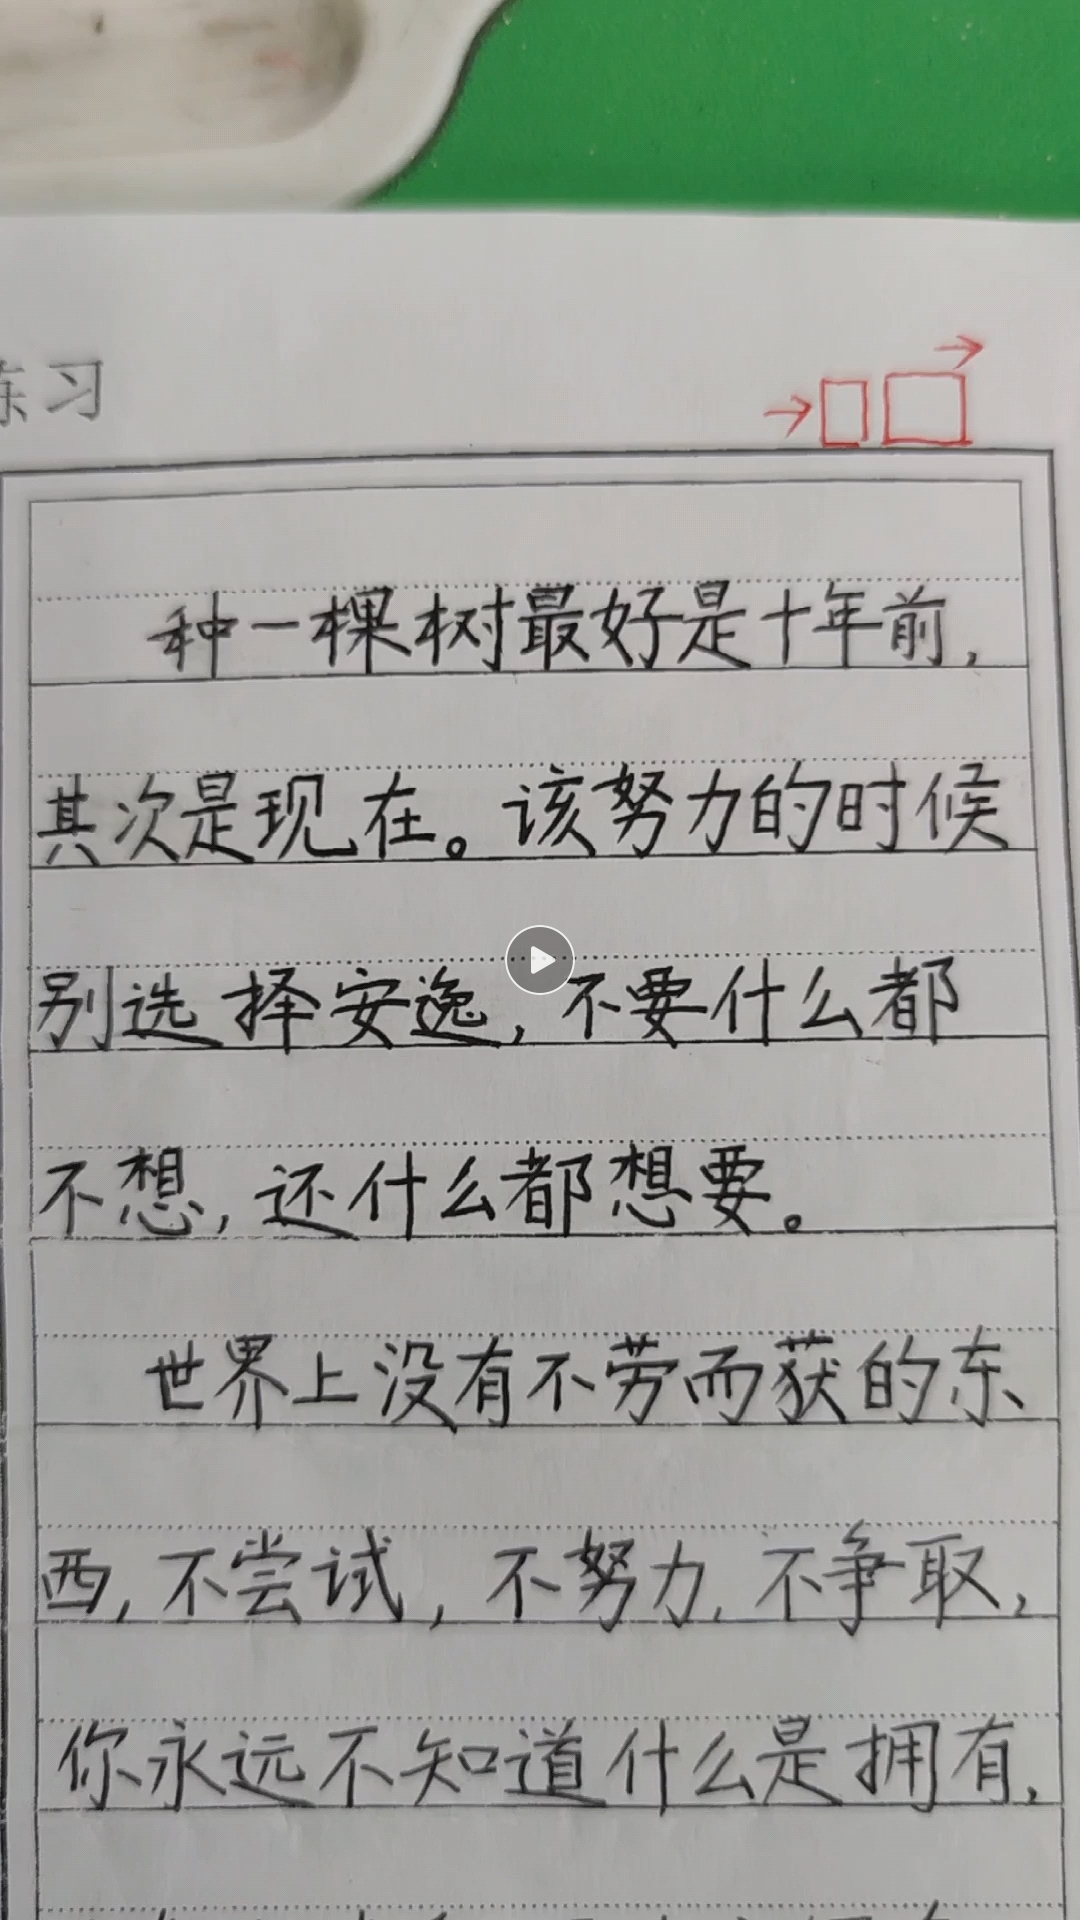 习
种一棵树最好是十年前，
其次是现在。该努力的时候
别选择安逸，不要什么都
不想，还什么都想要。
世界上没有不劳而获的东
西，不尝试，不努力，不争取，
你永远不知道什么是拥有，